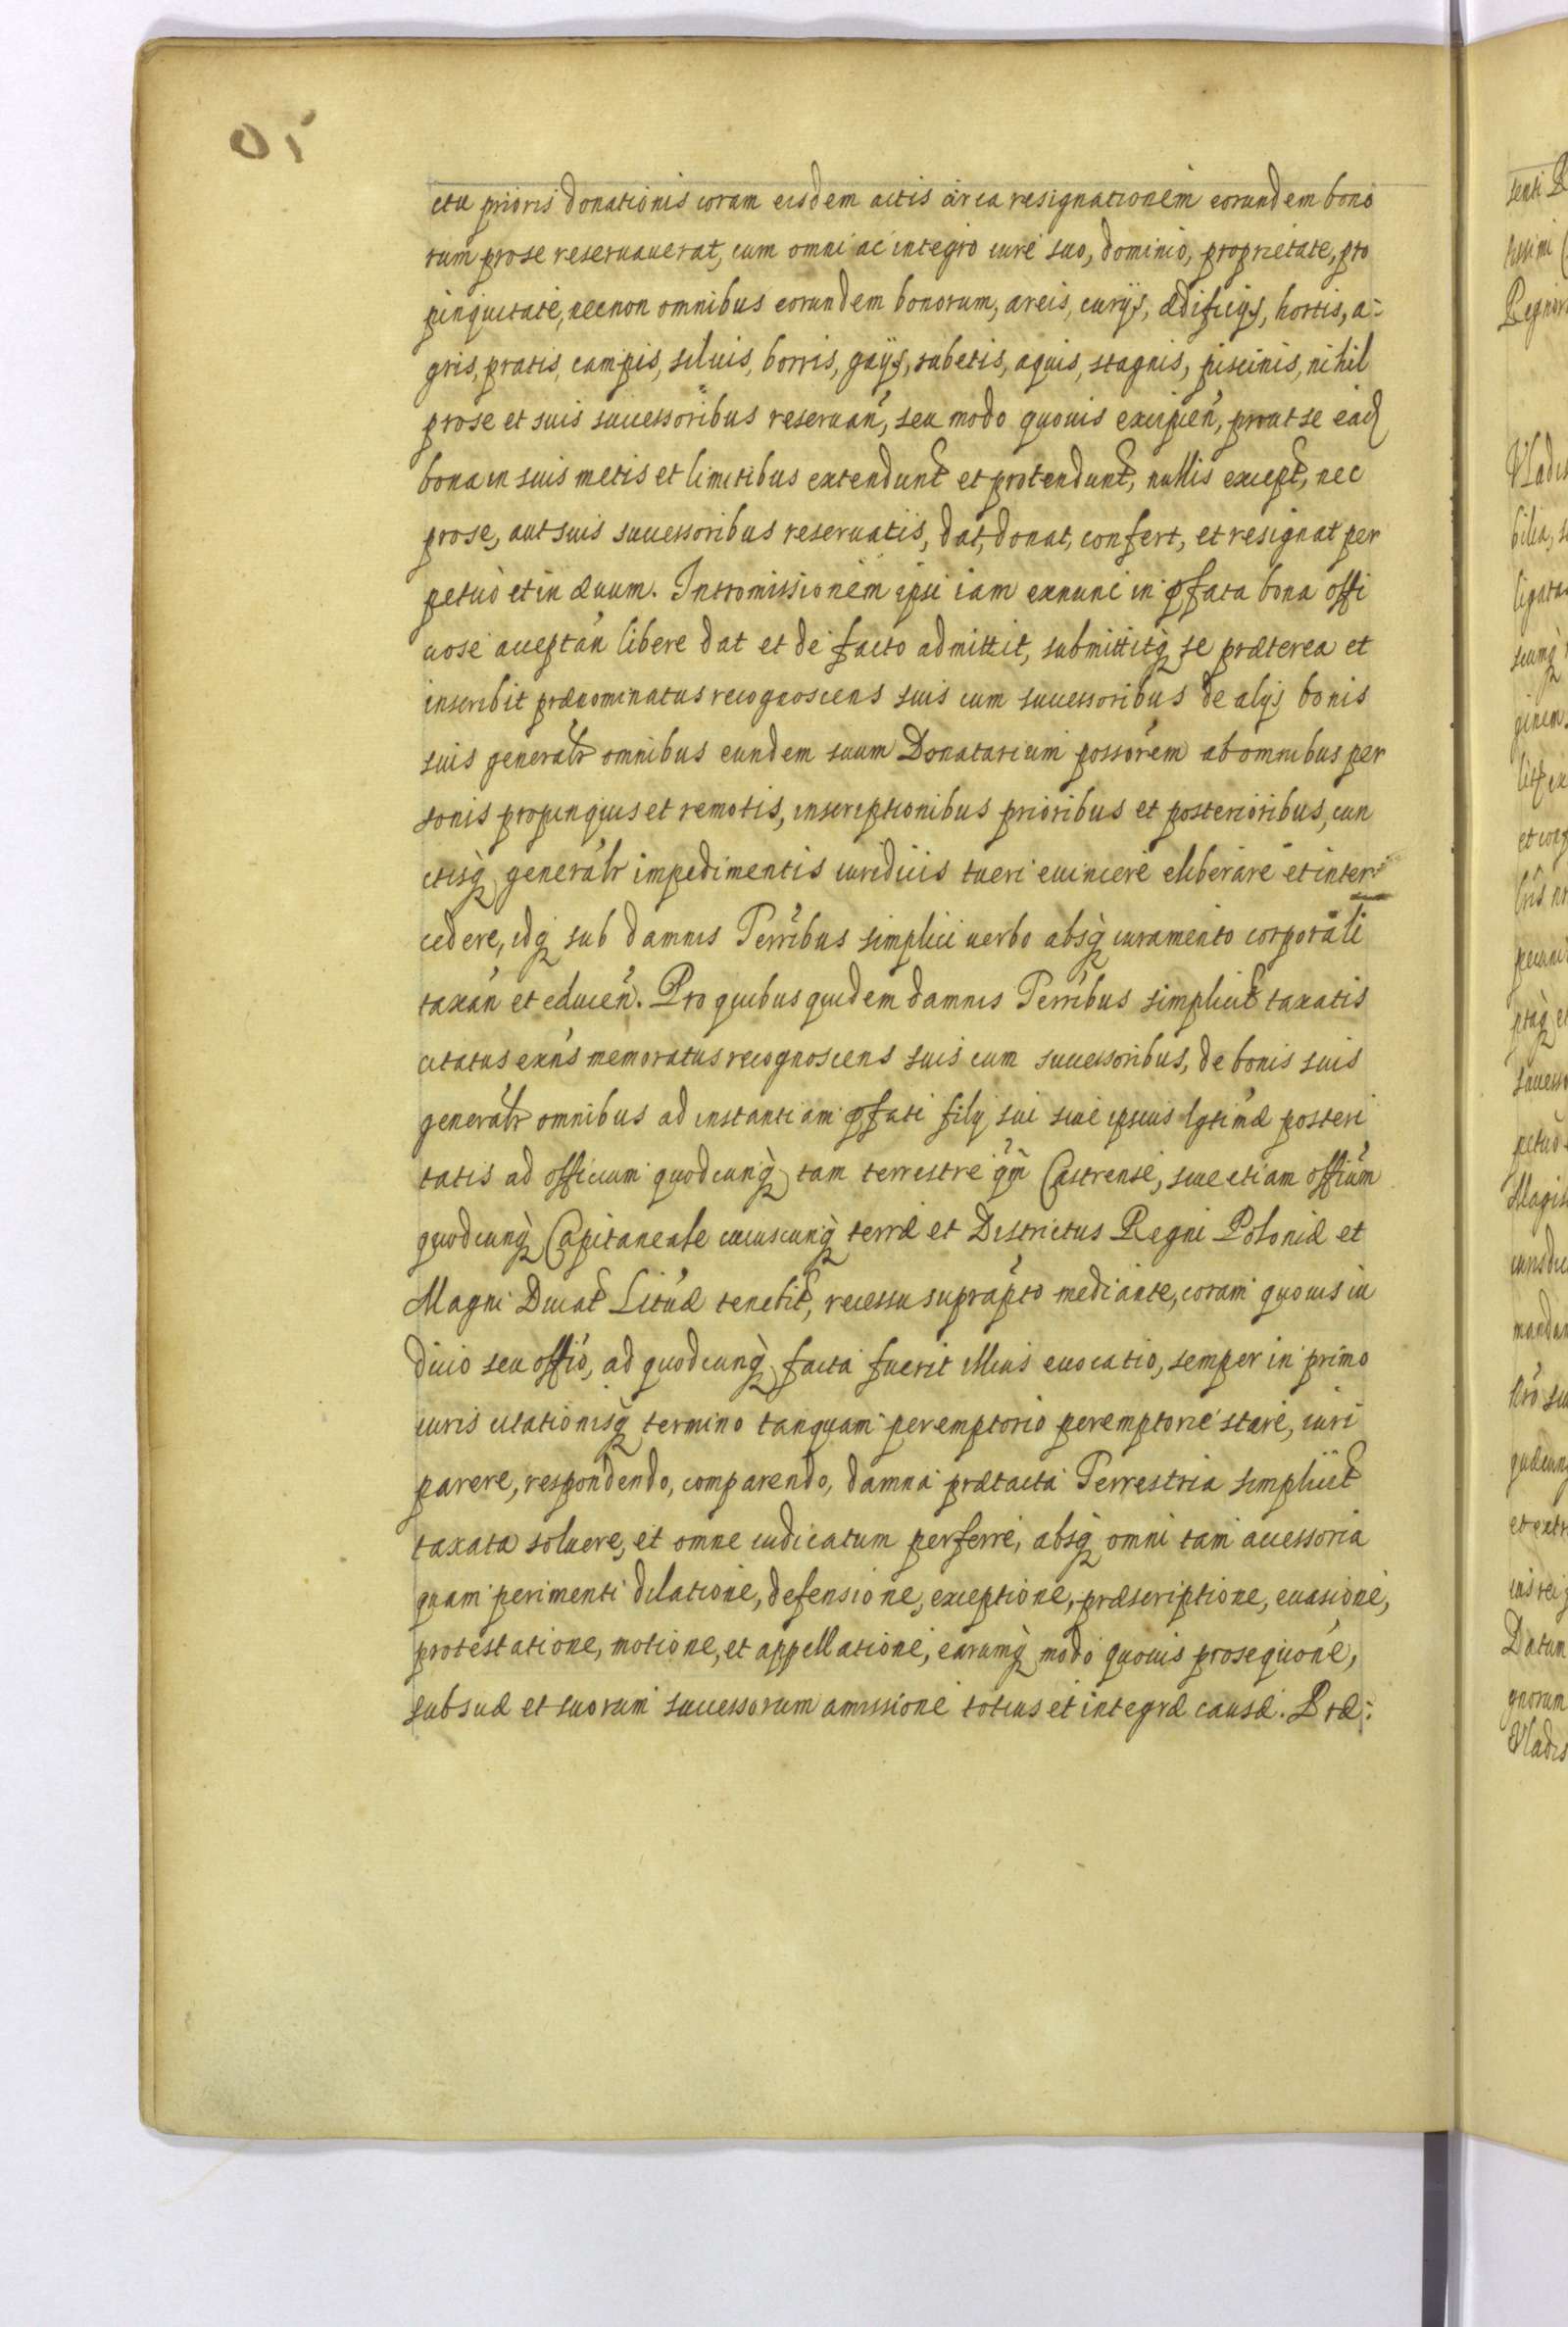 ctu prioris donationis coram eisdem actis circa resignationem eorundem bono
rum prose reseruauerat, cum omni ac integro iure suo, dominio, proprietate, pro
pinquitate, necnon omnibus eorundem bonorum, areis, curijs, ædificijs, hortis, a:
gris, pratis, campis, siluis, borris, gaijs, rubetis, aquis, stagnis, piscinis, nihil
prose et suis successoribus reseruań, seu modo quouis excipień, prout se eadꝫ
bona in suis metis et limitibus extendunt et protendunt, nullis except, nec
prose, aut suis successoribus reseruatis, dat, donat, confert, et resignat per
petuò et in æuum. Intromissionem ipsi iam exnunc in pfata bona offi
ciose acceptań libere dat et de facto admittit, submittitqꝫ se præterea et
inscribit prænominatus recognoscens suis cum successoribus de alijs bonis
suis generalr omnibus eundem suum Donatarium possorem ab omnibus per
sonis propinquis et remotis, inscriptionibus prioribus et posterioribus, cun
ctisqꝫ generalr impedimentis iuridicis tueri euincere eliberare et inter
cedere, idqꝫ sub damnis Terribus simplici uerbo absqꝫ iuramento corporali
taxań et educeń. Pro quibus quidem damnis Terribus simplicit taxatis
citatus exńs memoratus recognoscens suis cum successoribus, de bonis suis
generalr omnibus ad instantiam pfati filij sui siue ipsius lgtimæ posteri
tatis ad officium quodcunqꝫ tam terrestre qm̃ Castrense, siue etiam offium
quodcunqꝫ Capitaneale cuiuscunqꝫ terræ et Districtus Regni Poloniæ et
Magni Ducat Lituæ tenebit, recessu suprapto mediante, coram quouis iu
dicio seu offio, ad quodcunqꝫ facta fuerit illius euocatio, semper in primo
iuris citationisqꝫ termino tanquam peremptorio peremptorie stare, iuri
parere, respondendo, comparendo, damna prætacta Terrestria simplicit
taxata soluere, et omne iudicatum perferre, absqꝫ omni tam accessoria
quam perimenti dilatione, defensione, exceptione, præscriptione, euasione,
protestatione, motione, et appellatione, earumqꝫ modo quouis prosequone,
sub suæ et suorum successorum amissione totius et integræ causæ. Præ: